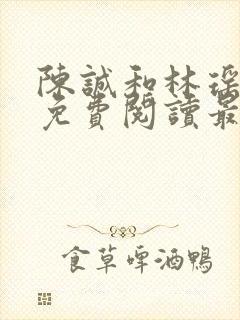 陳誠和林瑶
免費閱讀最
食草啤酒鴨